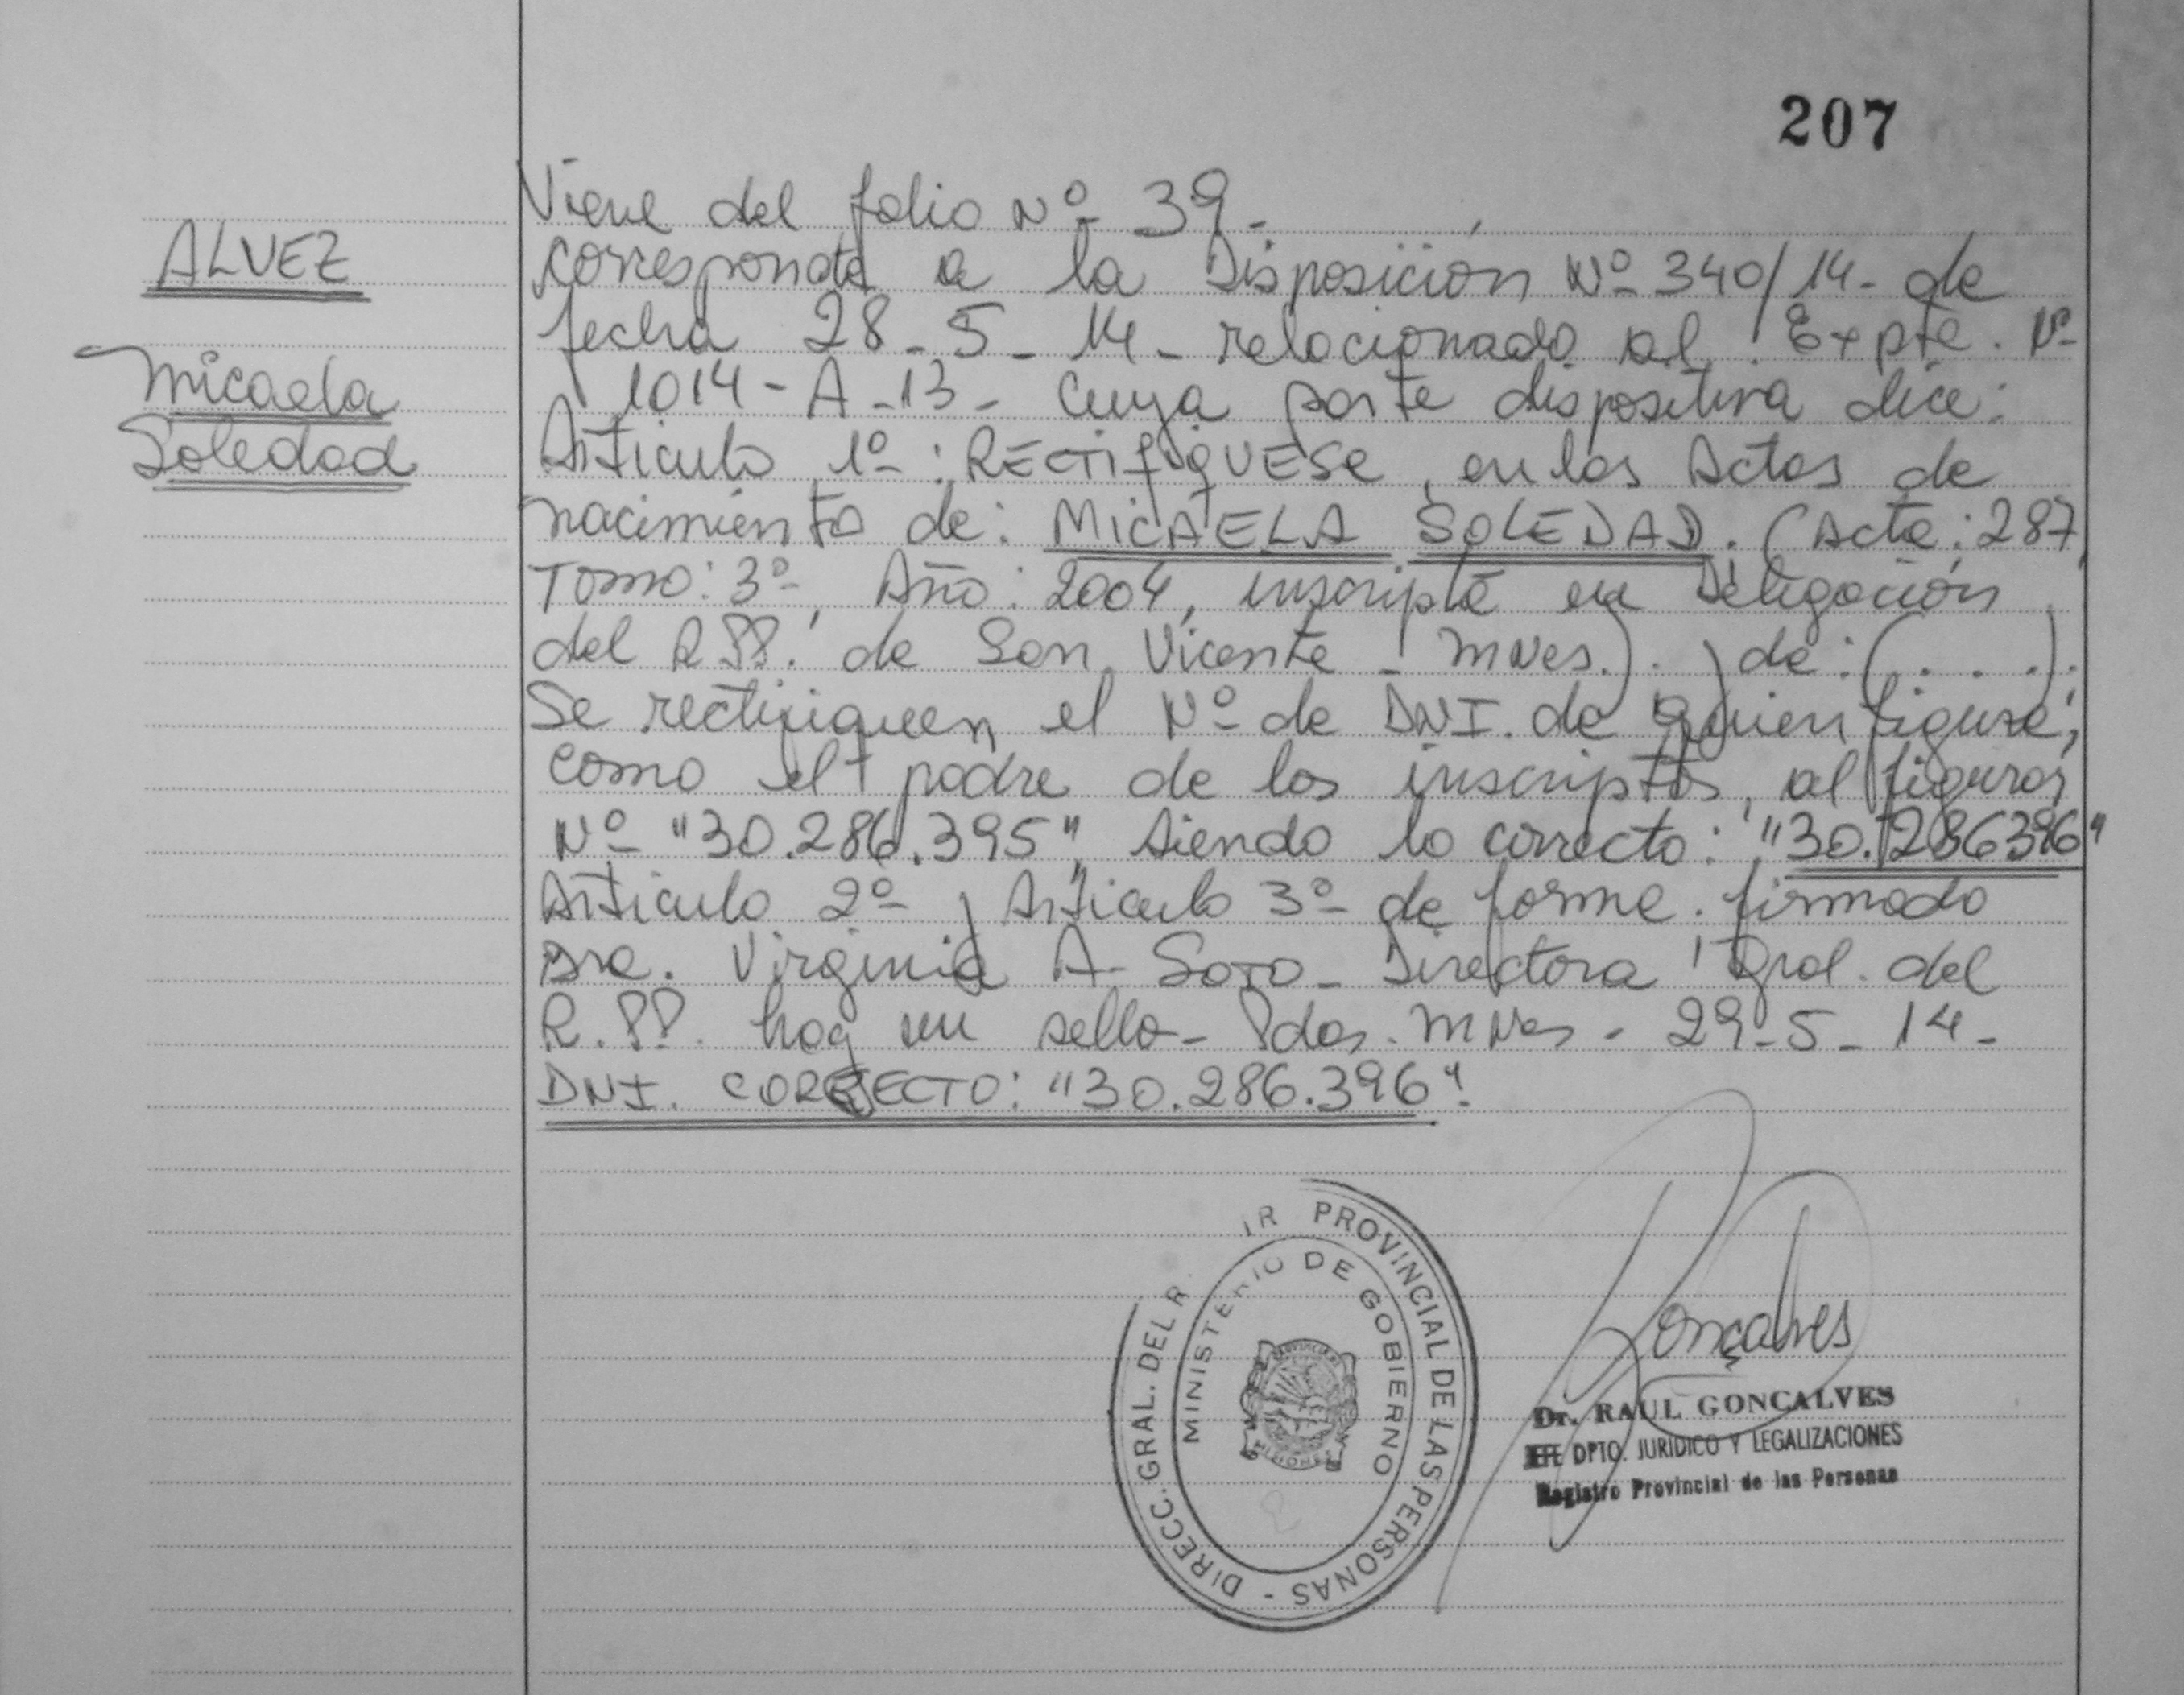 207
ALVEZ
Micaela
Soledad
Viene del folio Nº 39.
corresponde a la Disposición Nº 340/14- de
fecha 28-5-14- relacionado al Expte. Nº
1014-A-13- cuya parte dispositiva dice:
Artículo 1º: RECTIFIQUESE, en las Actas de
nacimiento de: MICAELA SOLEDAD. (Acta: 287,
Tomo: 3º, Año: 2004, inscripta en Delegación
del R.PP. de San Vicente - Mnes.). ) de: (. . . .).
Se rectifiquen el Nº de DNI. de quien figura,
como el padre de los inscriptos, al figurar
Nº "30.286.395", siendo lo correcto: "30.286396"
Artículo 2º y Artículo 3º de forma. firmado
Dra. Virginia A. Soto- Directora Gral. del
R.PP. hay un sello- Pdas. Mnes - 29-5-14-
DNI. CORRECTO: "30.286.396".
DIRECC. GRAL. DEL R. PROVINCIAL DE LAS PERSONAS -
MINISTERIO DE GOBIERNO
MISIONES
Gonçalves
Dr. RAUL GONCALVES
JEFE DPTO. JURIDICO Y LEGALIZACIONES
Registro Provincial de las Personas